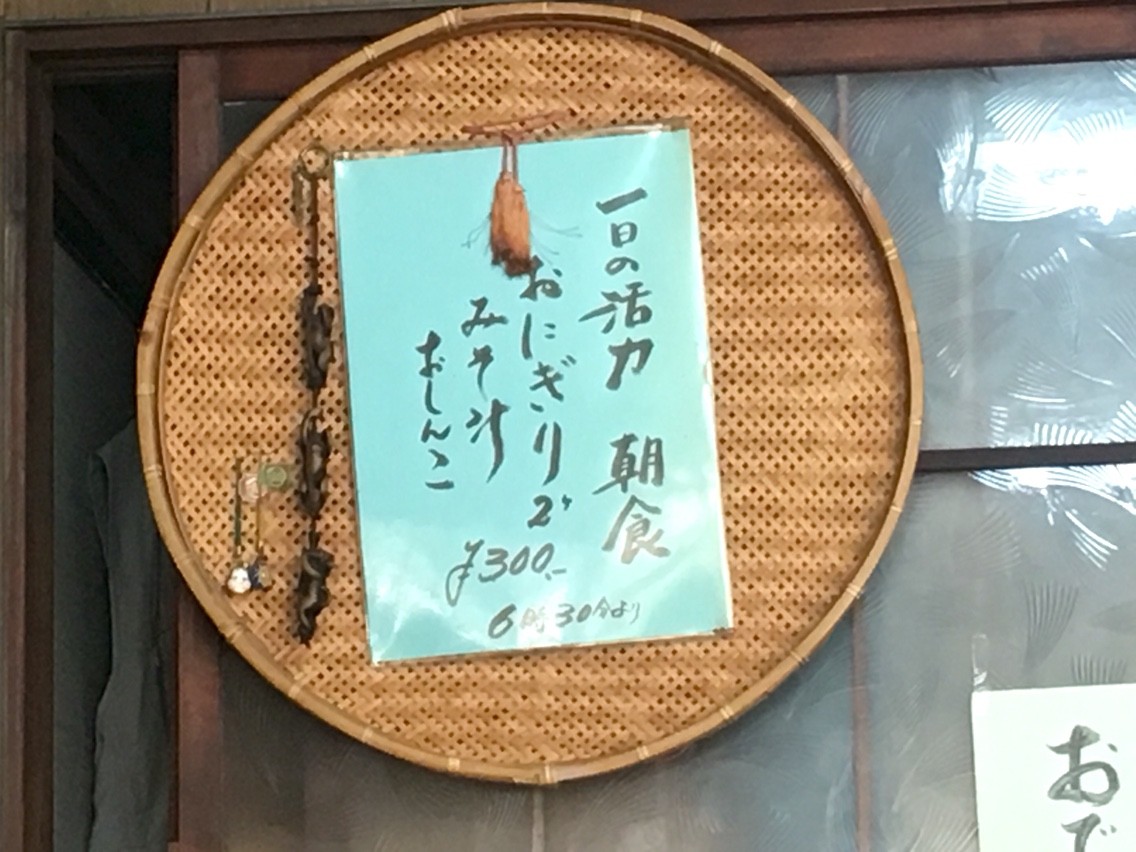 一日の活力 朝食
おにぎり2ヶ
みそ汁
おしんこ
¥300.-
6時30分より
おで